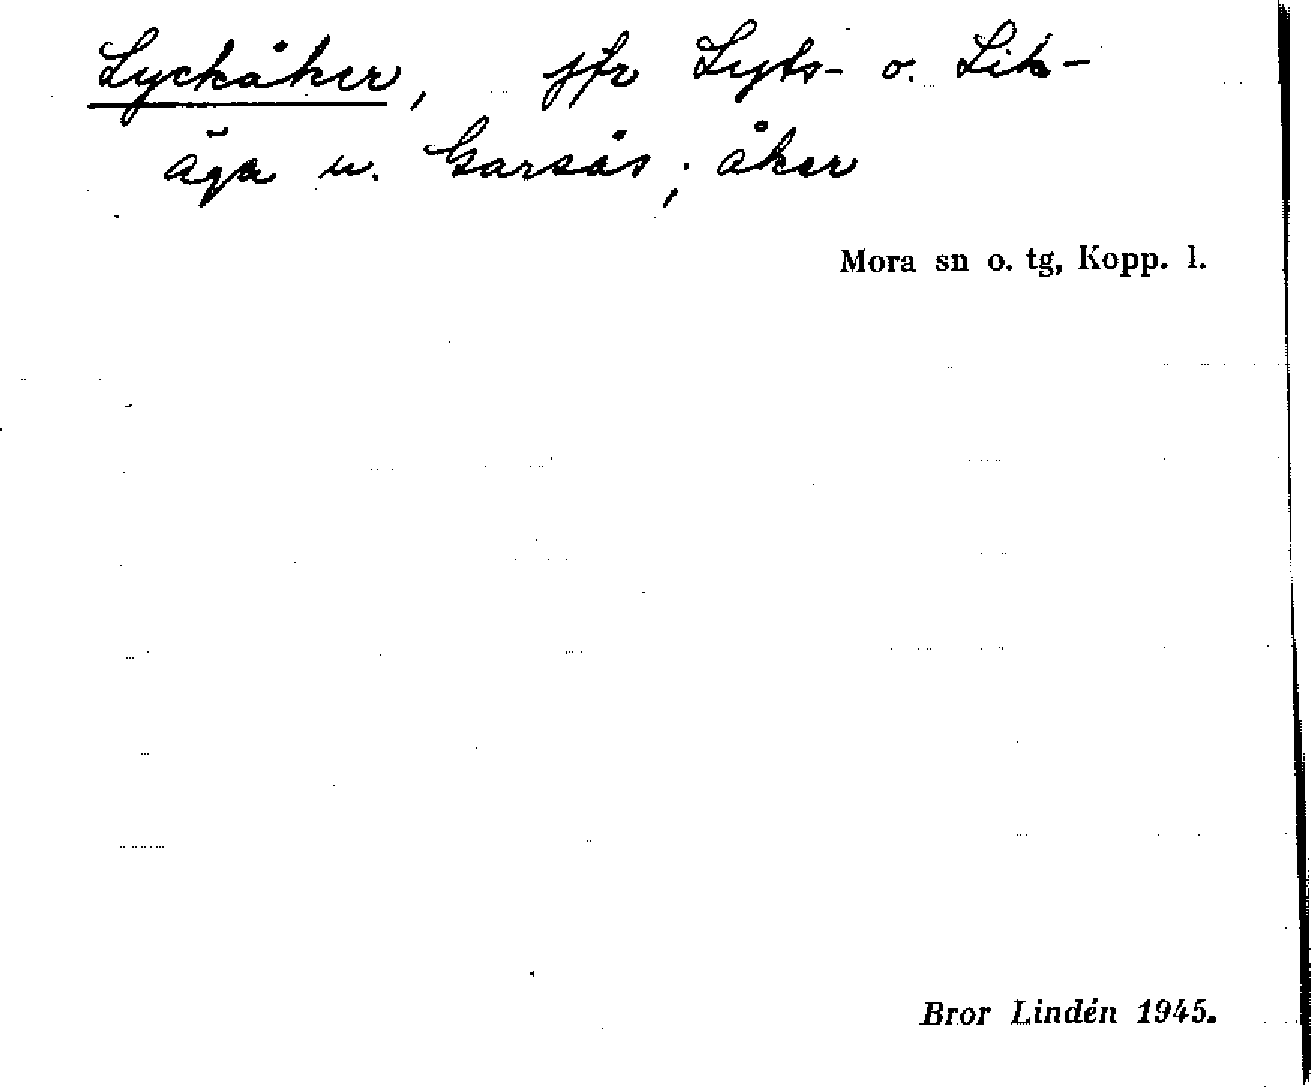 Lyckåker, jfr Lyts- o. Lik-
äga u. Garsås; åker
Mora sn o. tg, Kopp. l.
Bror Lindén 1945.